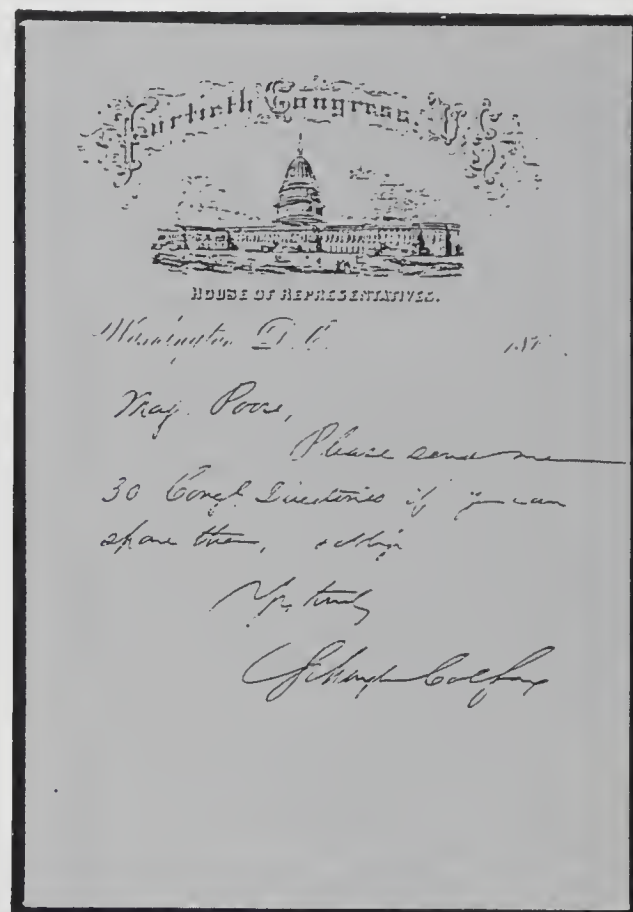 Fortieth Congress, U S
HOUSE OF REPRESENTATIVES.
Washington D. C. 186
Maj. Poore,
Please send me
30 Congl Directories if you can
spare them, & oblige
Yrs truly
Schuyler Colfax